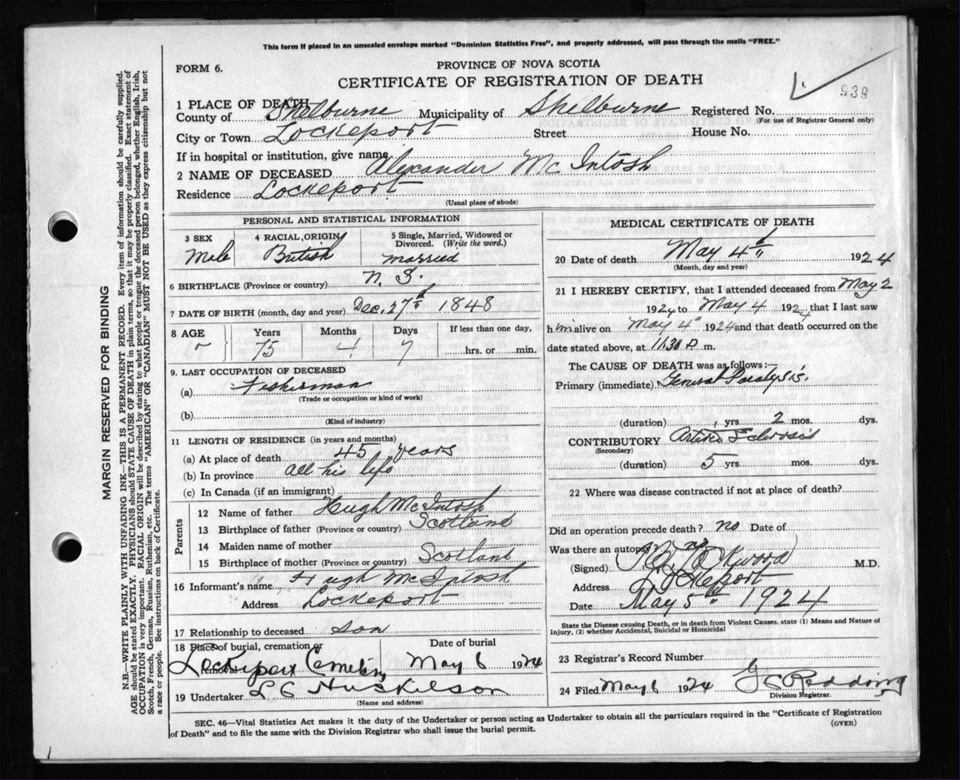 This form if placed in an unsealed envelope marked "Dominion Statistics Free", and properly addressed, will pass through the mails "FREE."
FORM 6.
PROVINCE OF NOVA SCOTIA
CERTIFICATE OF REGISTRATION OF DEATH
838
1 PLACE OF DEATH
County of Shelburne Municipality of Shelburne Registered No.
(For use of Registrar General only)
City or Town Lockeport Street House No.
If in hospital or institution, give name
2 NAME OF DECEASED Alexander McIntosh
Residence Lockeport
(Usual place of abode)
MARGIN RESERVED FOR BINDING
N.B.—WRITE PLAINLY WITH UNFADING INK—THIS IS A PERMANENT RECORD. Every item of information should be carefully supplied.
AGE should be stated EXACTLY. PHYSICIANS should STATE CAUSE OF DEATH in plain terms, so that it may be properly classified. Exact statement of
OCCUPATION is very important. RACIAL ORIGIN will be described by stating to what people or tongue the deceased person belonged, whether English, Irish,
Scotch, French, German, Russian, Ruthenian, etc. The terms "AMERICAN" OR "CANADIAN" MUST NOT BE USED as they express citizenship but not
a race or people. See instructions on back of Certificate.
PERSONAL AND STATISTICAL INFORMATION
3 SEX 4 RACIAL ORIGIN 5 Single, Married, Widowed or
Divorced. (Write the word.)
Male British married
6 BIRTHPLACE (Province or country) N. S.
7 DATE OF BIRTH (month, day and year) Dec. 27th 1848
8 AGE Years Months Days If less than one day,
75 4 7 hrs. or min.
9. LAST OCCUPATION OF DECEASED
(a) Fisherman
(Trade or occupation or kind of work)
(b)
(Kind of industry)
11 LENGTH OF RESIDENCE (in years and months)
(a) At place of death 45 years
(b) In province all his life
(c) In Canada (if an immigrant)
Parents
12 Name of father Hugh McIntosh
13 Birthplace of father (Province or country) Scotland
14 Maiden name of mother
15 Birthplace of mother (Province or country) Scotland
16 Informant's name Hugh McIntosh
Address Lockeport
17 Relationship to deceased son
18 Place of burial, cremation or removal Date of burial
Lockeport Cemetery May 6 1924
19 Undertaker L C Huskilson
(Name and address)
MEDICAL CERTIFICATE OF DEATH
20 Date of death May 4th 1924
(Month, day and year)
21 I HEREBY CERTIFY, that I attended deceased from May 2
1924 to May 4 1924 that I last saw
him alive on May 4th 1924 and that death occurred on the
date stated above, at 11.30 P. m.
The CAUSE OF DEATH was as follows:—
Primary (immediate) General Paralysis
(duration) yrs 2 mos. dys.
CONTRIBUTORY Arterio Sclerosis
(Secondary)
(duration) 5 yrs mos. dys.
22 Where was disease contracted if not at place of death?
Did an operation precede death? no Date of
Was there an autopsy? no
(Signed) Lockwood M.D.
Address Lockeport
Date May 5th 1924
State the Disease Causing Death, or in death from Violent Causes, state (1) Means and Nature of
Injury, (2) whether Accidental, Suicidal or Homicidal
23 Registrar's Record Number
24 Filed May 6 1924 Redding
Division Registrar.
SEC. 46—Vital Statistics Act makes it the duty of the Undertaker or person acting as Undertaker to obtain all the particulars required in the "Certificate of Registration
of Death" and to file the same with the Division Registrar who shall issue the burial permit. (OVER)